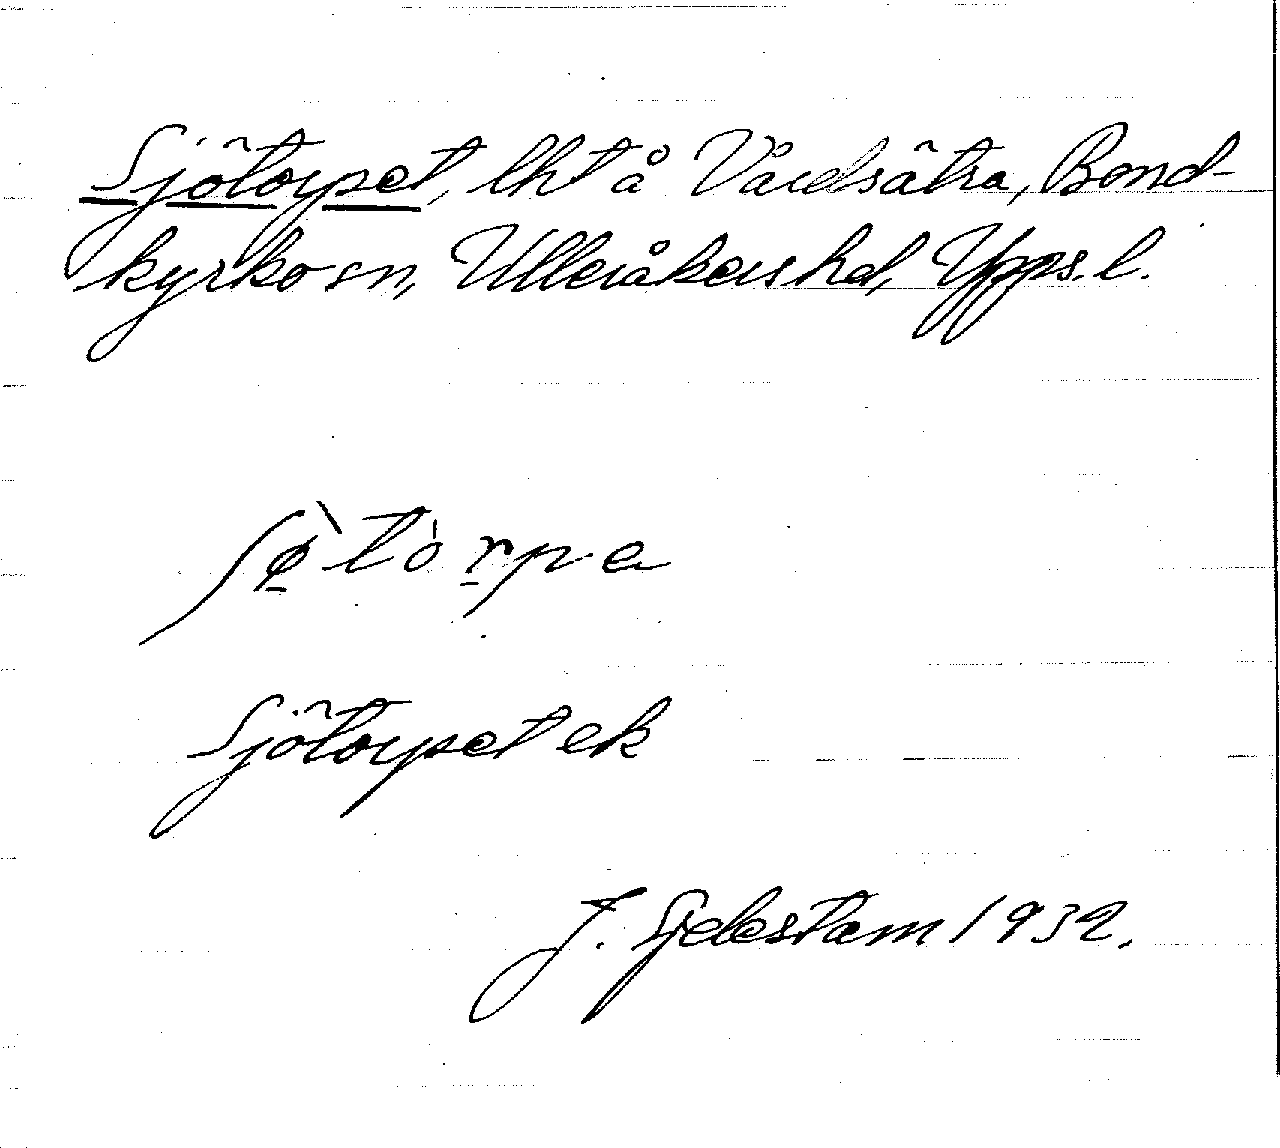 Sjötorpet, lht å Vårdsätra, Bond-
kyrko sn, Ulleråkers hd, Upps. l.
ʃø̀tórpe
Sjötorpet ek
J. Sjelestam 1932.